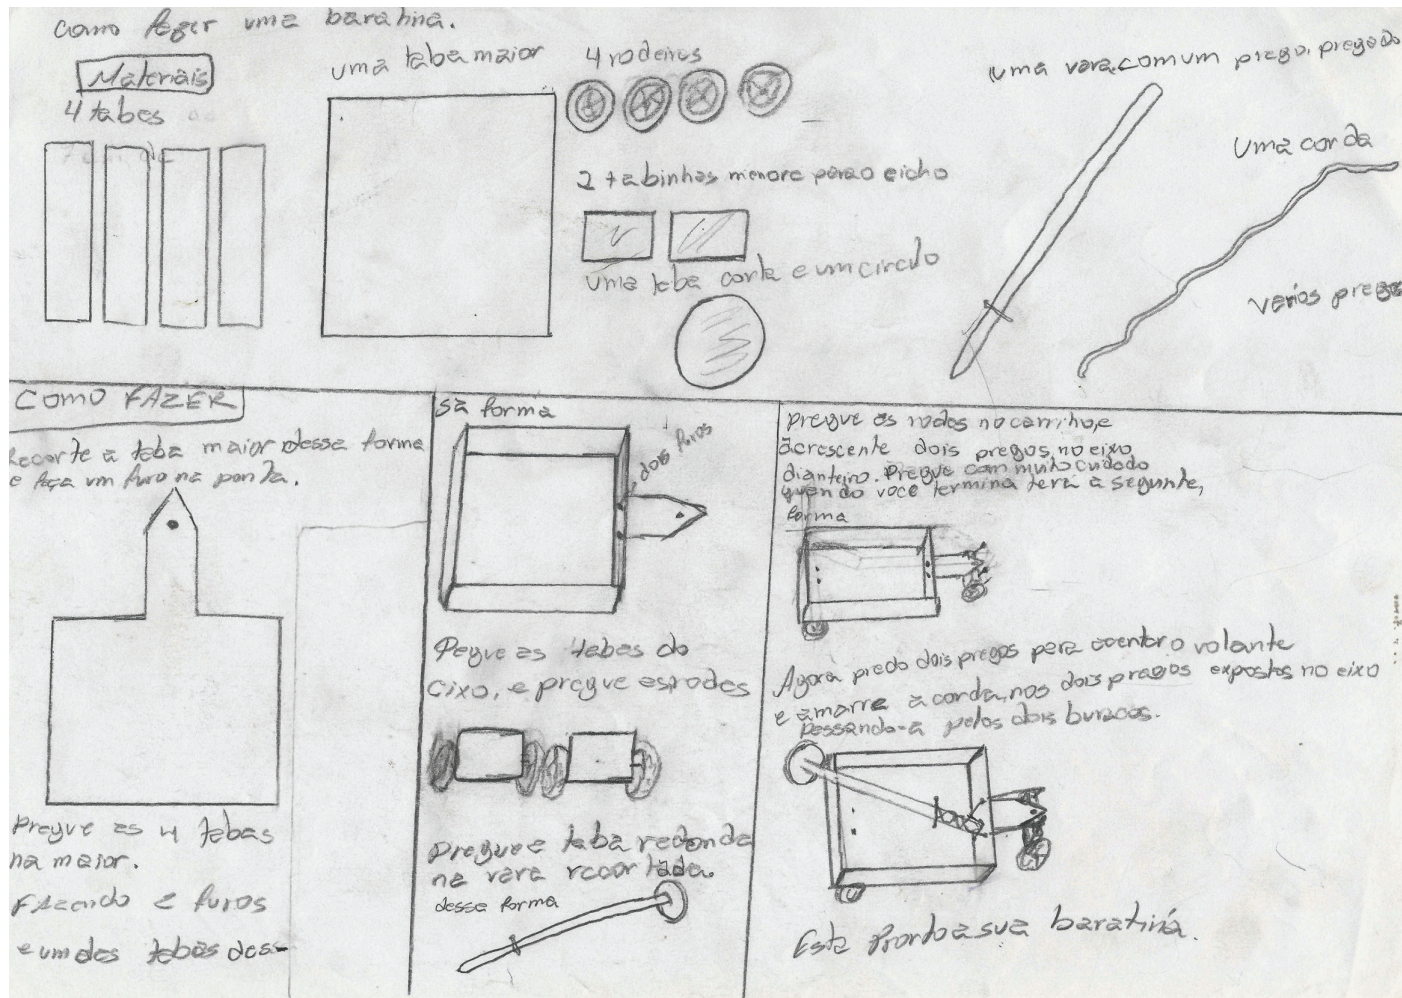 Como fazer uma baratina.
Materiais
4 tabas
uma taba maior
4 rodeiras
2 tabinhas menore para o eicho
uma taba corta e um circulo
uma vara com um prego, pregado
Uma corda
varios pregos
COMO FAZER
Recorte a taba maior dessa forma
e faça um furo na ponta.
Pregue as 4 tabas
na maior.
FAzendo 2 furos
e um das tabas des-
sa forma
dois furos
Pegue as tabas do
eixo, e pregue as rodas
Pregue a taba redonda
na vara recortada.
dessa forma
Pregue as rodas no carrinho, e
acrescente dois pregos, no eixo
dianteiro. Pregue com muito cuidado
quando você termina terá a seguinte,
forma
Agora dois pregos para o volante
e amarre a corda, nos dois pregos expostos no eixo
passando-a pelos dois buracos.
Esta Pronto a sua baratina.